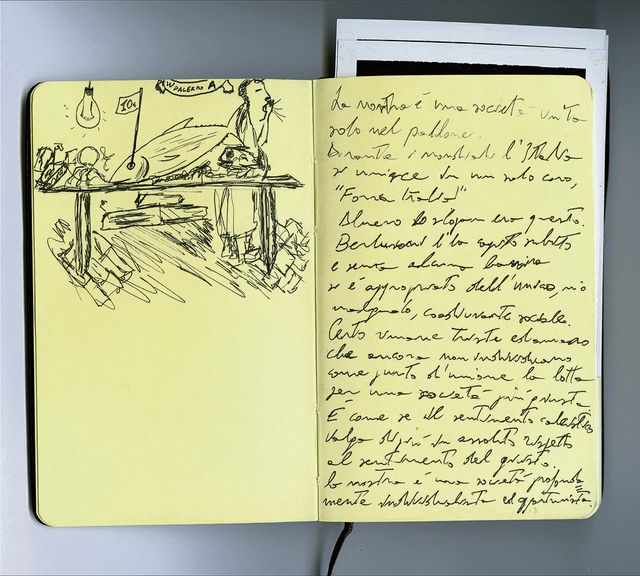 W PALERMO A
10€
La nostra è una società unita
solo nel pallone.
Durante i mondiali l'Italia
si unisce in un solo coro,
"Forza Italia!"
Almeno lo slogan era questo.
Berlusconi l'ha capito subito
e senza alcuna
si è appropriato dell'unico, mio
malgrado, coadiuvante sociale.
Certo rimane triste
che ancora non individuiamo
come punto d'unione la lotta
per una società più giusta.
È come se il sentimento calcistico
valga di più in assoluto rispetto
al sentimento del giusto.
la nostra è una società profonda=
mente individualista ed opportunista.